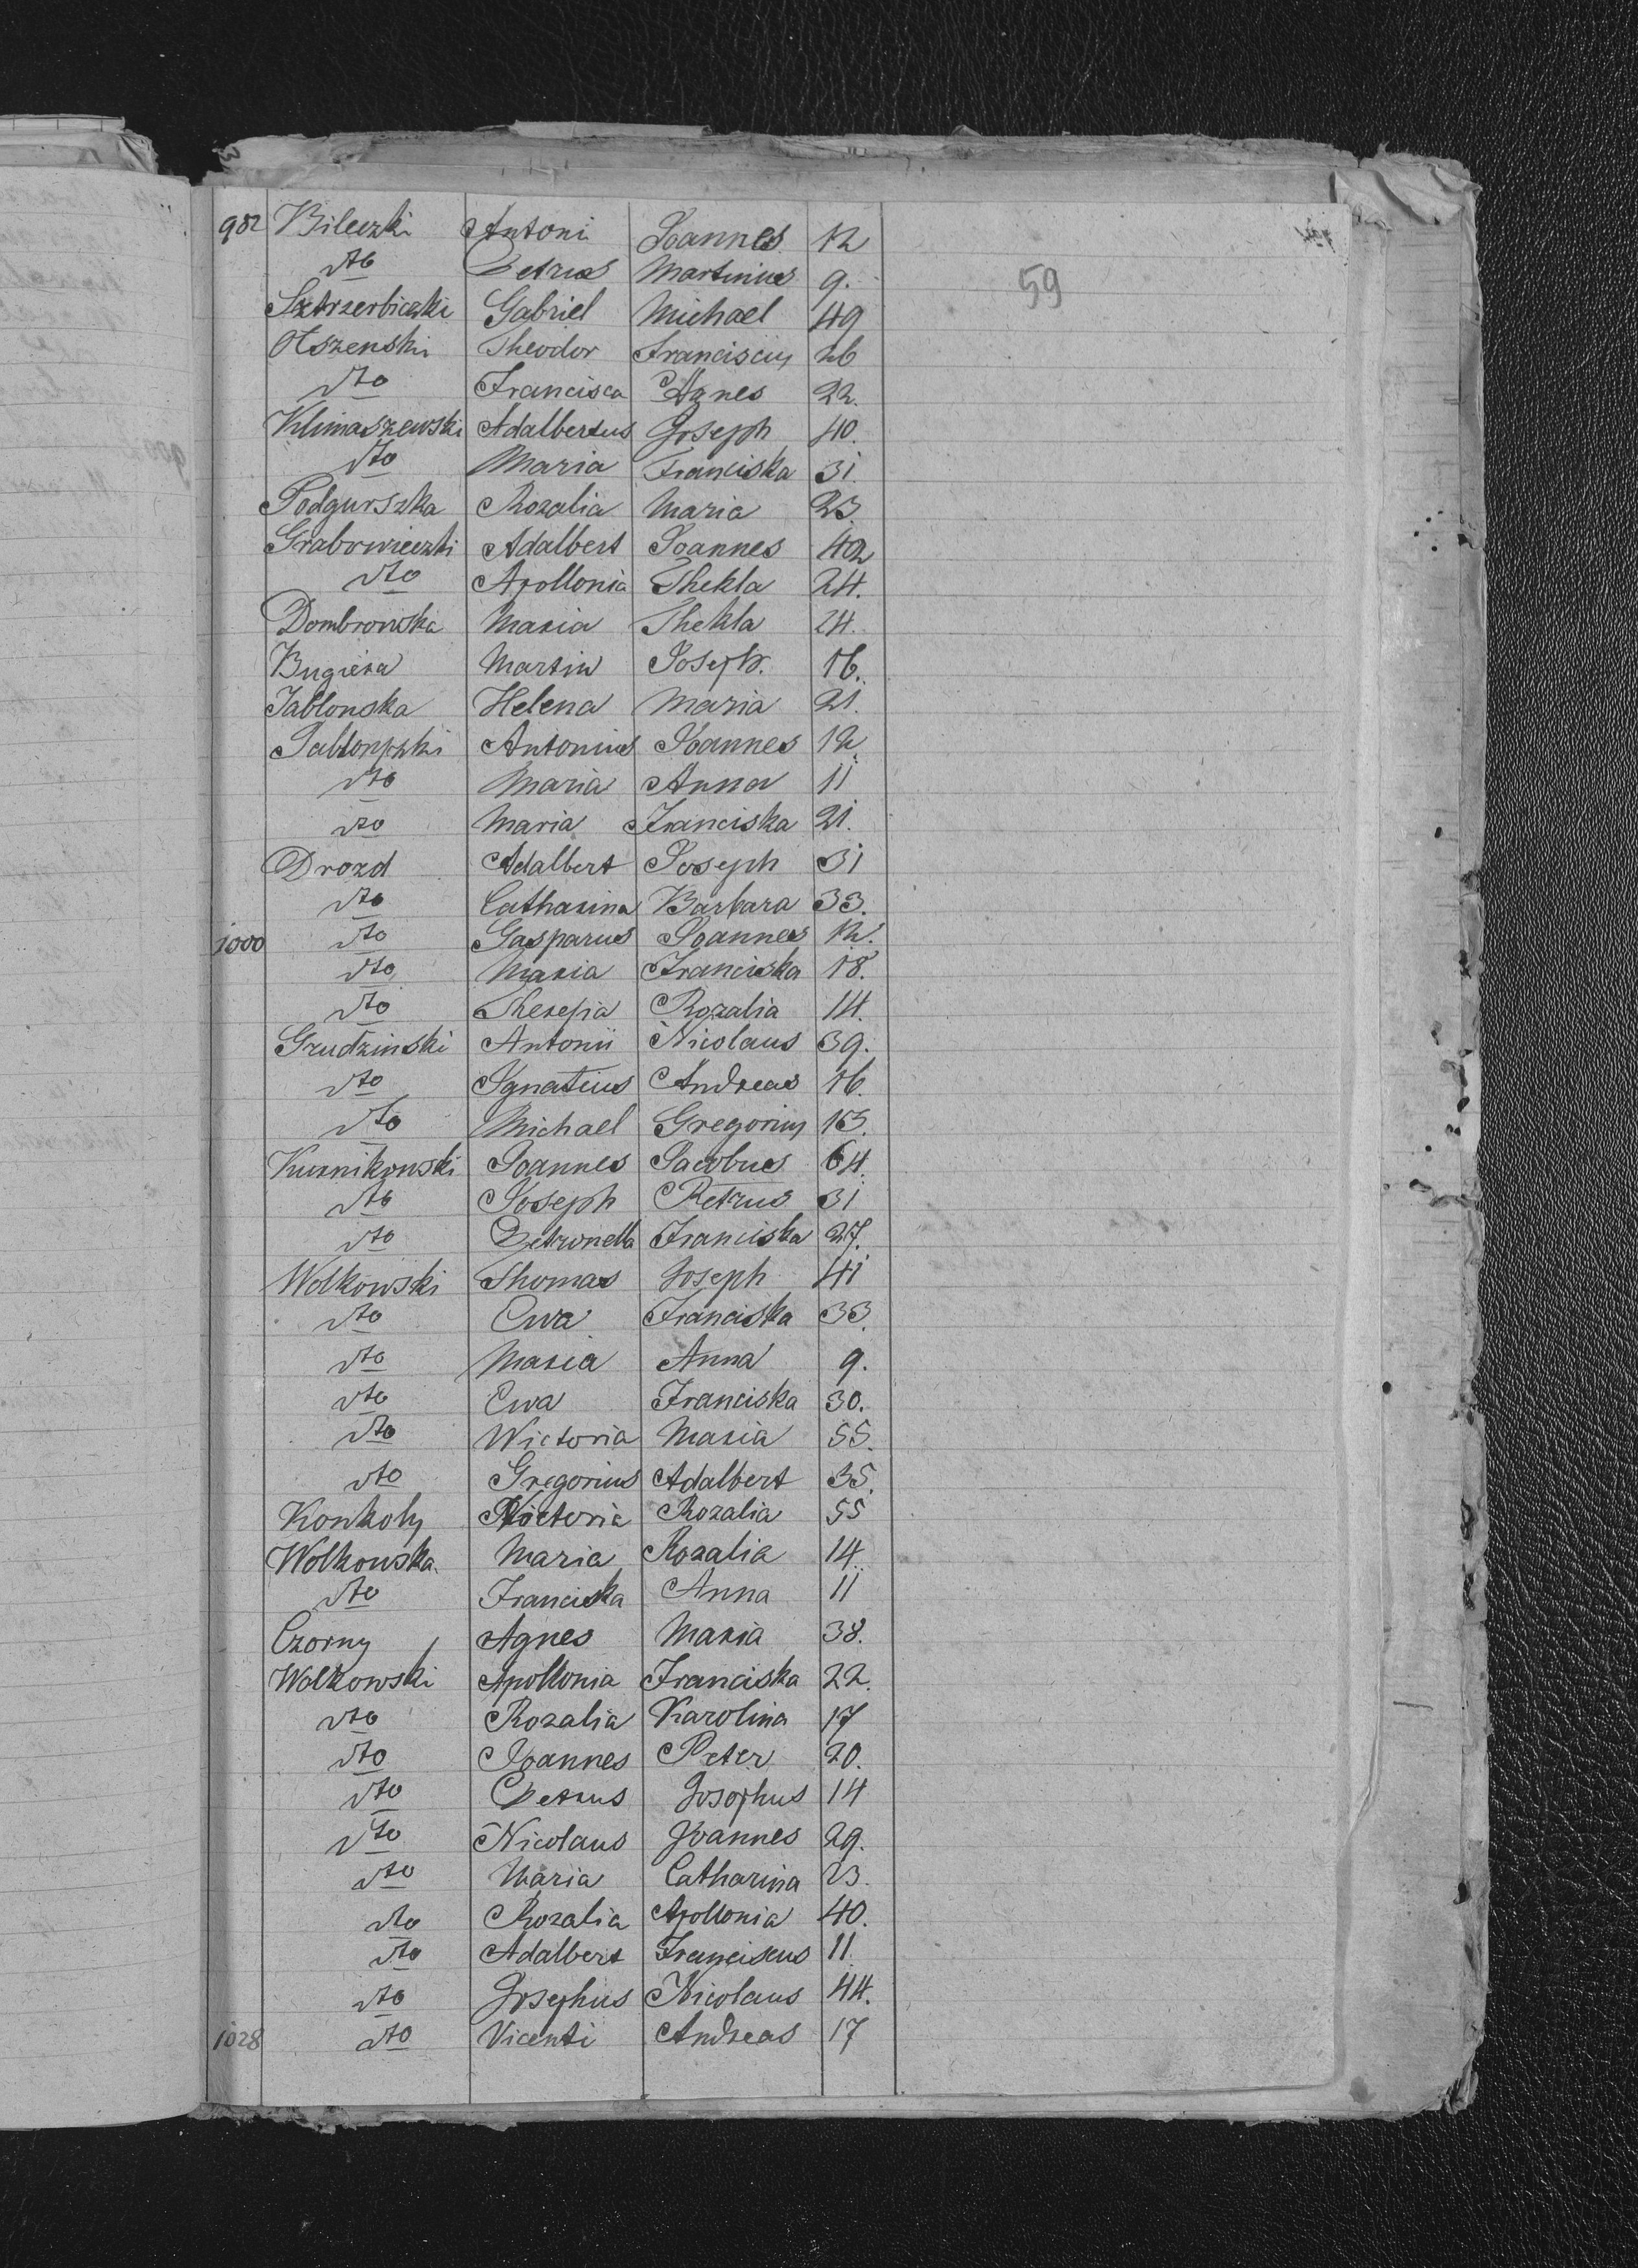 982 Bileczki Antoni Joannes 12
dto Petrus Martinius 9.
59
Sztrzerbiczki Gabriel Michael 49
Olszenski Theodor Franciscus 26
dto Francisca Agnes 22.
Klimaszewski Adalbertus Joseph 40.
dto Maria Franciska 31.
Podgurszka Rozalia Maria 23.
Grabowieczki Adalbert Joannes 42
dto Apollonia Thekla 24.
Dombrowska Maria Thekla 24.
Bugiera Martin Joseph. 16.
Jablonska Helena Maria 21.
Jablonpski Antonius Joannes 12.
dto Maria Anna 11
dto Maria Franciska 21.
Drozd Adalbert Joseph 31
dto Catharina Barbara 33.
1000 dto Gasparus Joannes 12.
dto Maria Franciska 18.
dto Theresia Rozalia 14.
Grudzinski Antonii Nicolaus 39.
dto Ignatius Andreas 16.
dto Michael Gregorius 13.
Kurnikowski Joannes Jacobus 64.
dto Joseph Petrus 31
dto Petronella Franciska 27.
Wolkowski Thomas Joseph 41
dto Ewa Franciska 33.
dto Maria Anna 9.
dto Ewa Franciska 30.
dto Wictoria Maria 55.
dto Gregorius Adalbert 35.
Konkoly Victoria Rozalia 55
Wolkowska. Maria Rozalia 14.
dto Franciska Anna 11
Czorny Agnes Maria 38.
Wolkowski Apollonia Franciska 22.
dto Rozalia Karolina 17
dto Joannes Peter 20.
dto Petrus Josophus 14
dto Nicolaus Joannes 29.
dto Maria Catharina 23.
dto Rozalia Apollonia 40.
dto Adalbert Franciscus 11.
dto Josephus Nicolaus 44.
1028 dto Vicenti Andreas 17